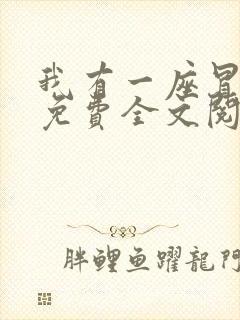 我有一座冒
免費全文閱
胖鯉魚躍龍門